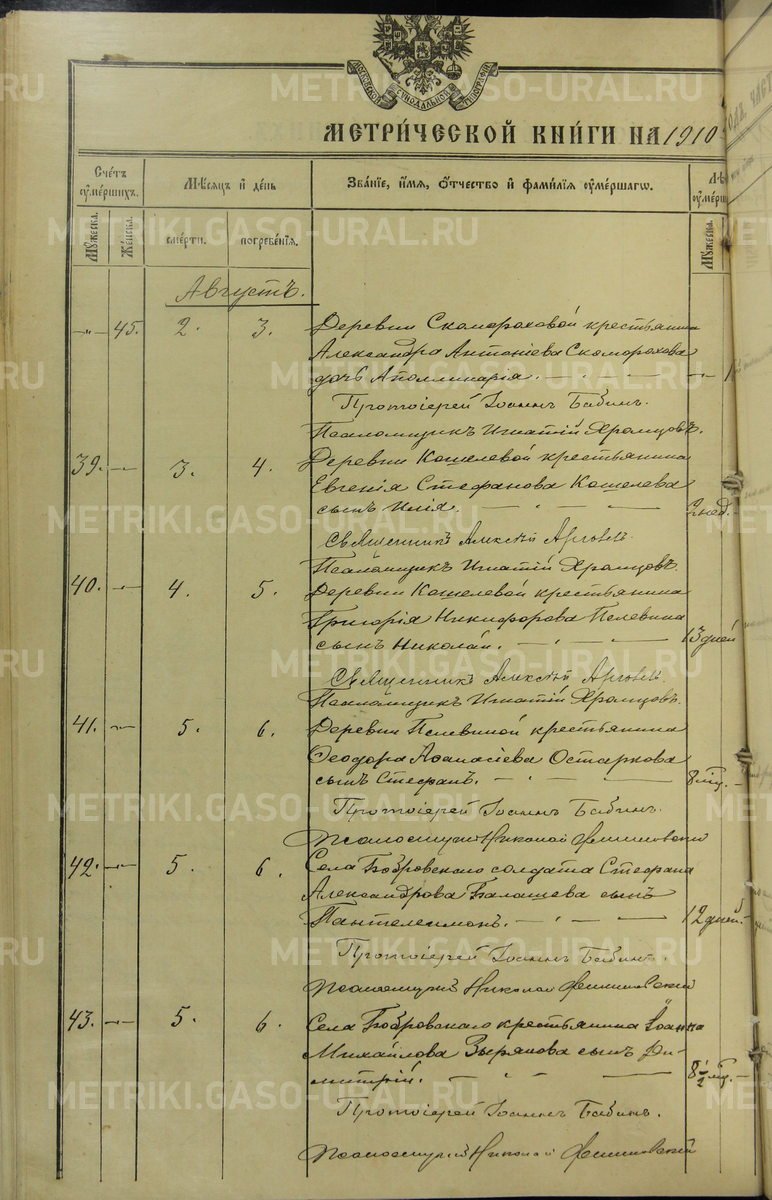 МОСКОВСКОЙ СѴНОДАЛЬНОЙ ТИПОГРАФІИ
МЕТРИ́ЧЕСКОЙ КНИ́ГИ НА 1910
Сче́тъ ᲂу҆ме́ршихъ.
Мѣ́сяцъ и҆ де́нь
Зва́нїе, и҆́мя, ѻ҆́тчество и҆ фами́лїя ᲂу҆ме́ршагѡ.
Лѣ
ᲂу҆ме́рш
Мꙋ́жеска.
Же́нска.
сме́рти.
погребе́нїя.
Мꙋ́жеска
Августъ.
-„- 45. 2. 3. Деревни Скомороховой крестьянина
Александра Антоніева Скоморохова
дочь Аполлинарія. - „ - -„- 1
Протоіерей Іоаннъ Бабинъ.
Псаломщикъ Игнатій Храмцовъ.
39. -„- 3. 4. Деревни Кошелевой крестьянина
Евгенія Стефанова Кошелева
сынъ Илія. - „ - 2 нед. -
Священникъ Алексій
Псаломщикъ Игнатій Храмцовъ.
40. -„- 4. 5. Деревни Кошелевой крестьянина
Григорія Никифорова Пелевина
сынъ Николай. - „ - 13 дней
Священникъ Алексій
Псаломщикъ Игнатій Храмцовъ.
41. -„- 5. 6. Деревни Пелевиной крестьянина
Ѳеодора Аѳанасіева Остаркова
сынъ Стефанъ. - „ - 8 мѣц. -
Протоіерей Іоаннъ Бабинъ.
Псаломщикъ Николай
42. -„- 5. 6. Села Бобровскаго солдата Стефана
Александрова Балашева сынъ
Пантелеимонъ. - „ - 12 дней. -
Протоіерей Іоаннъ Бабинъ.
Псаломщикъ Николай
43. -„- 5. 6. Села Бобровскаго крестьянина Іоанна
Михайлова Зырянова сынъ Ди-
митрій. - „ - 8½ мѣц. -
Протоіерей Іоаннъ Бабинъ.
Псаломщикъ Николай
METRIKI.GASO-URAL.RU